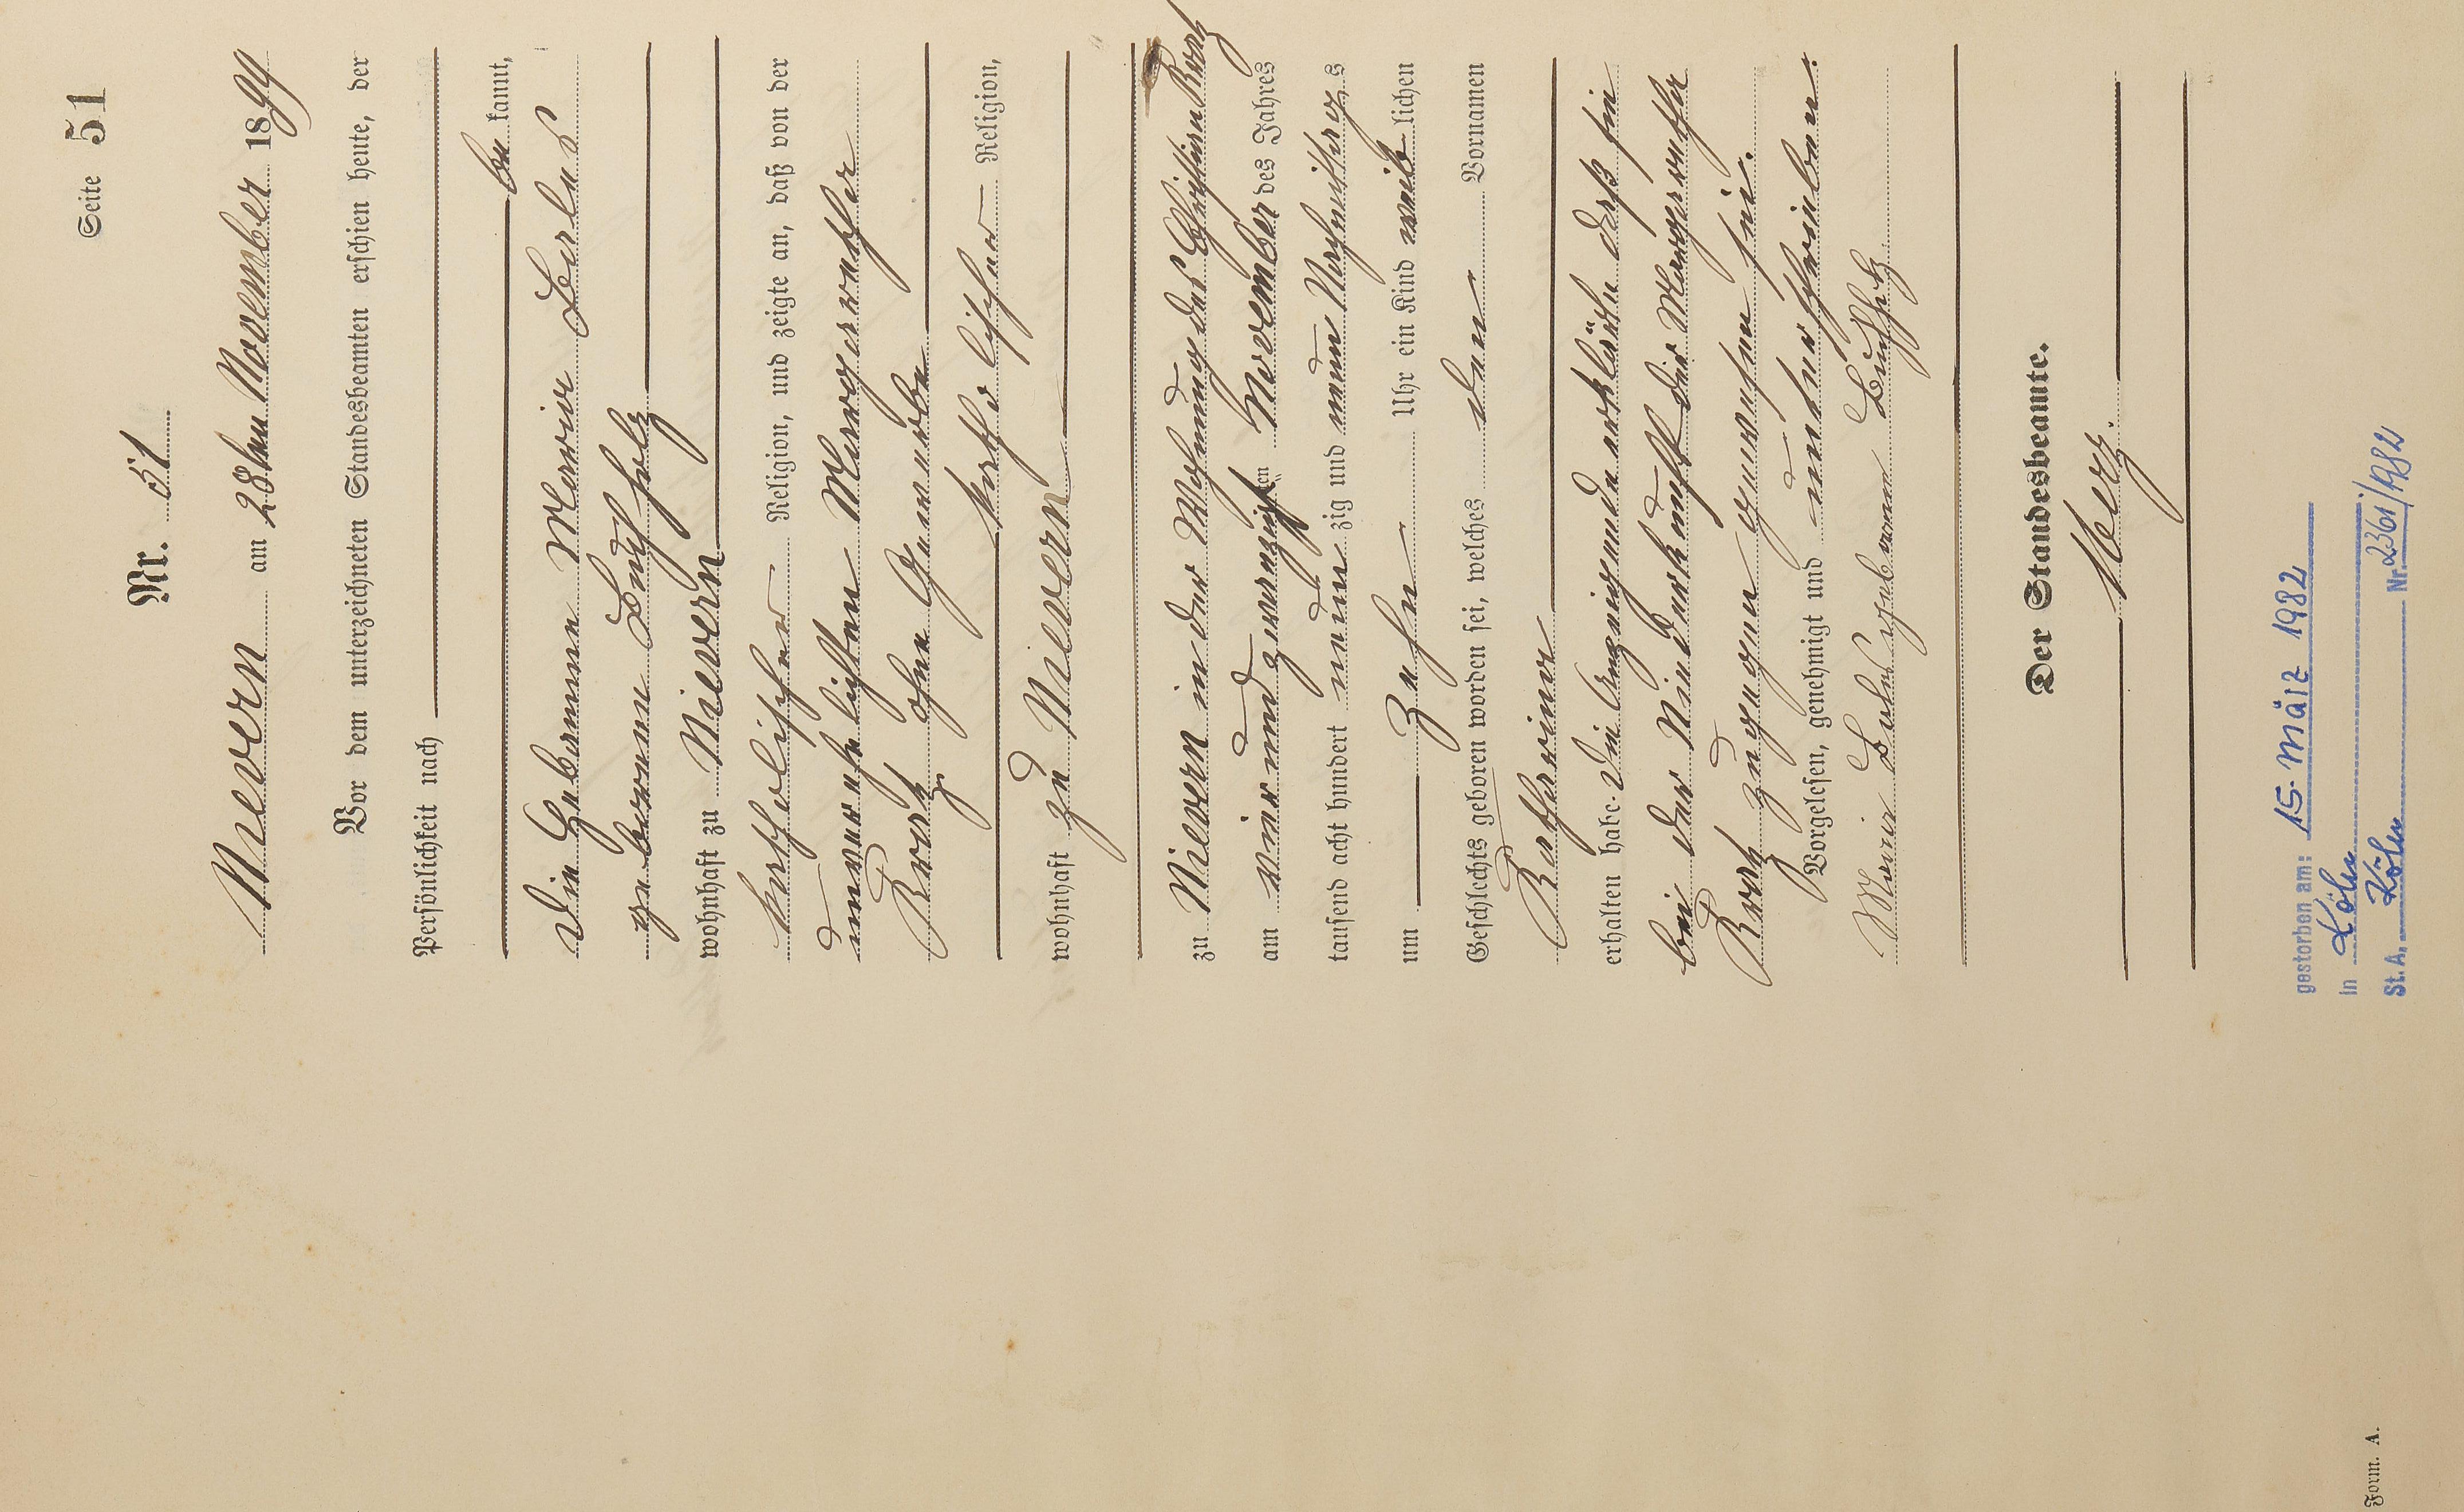 Seite 51
Nr. 51
Nievern am 28ten November 1899
Vor dem unterzeichneten Standesbeamten erschien heute, der
Persönlichkeit nach
be kannt,
die Hebamme Maria
geborene Buchholz
wohnhaft zu Nievern
katholischer Religion, und zeigte an, daß von der
unverehelichten Margaretha
ohne Gewerbe
katholischer Religion,
wohnhaft zu Nievern
zu Nievern in der Wohnung des Christian
am vierundzwanzigsten November des Jahres
tausend acht hundert neunzig und neun Vormittags
um Zehn Uhr ein Kind weiblichen
Geschlechts geboren worden sei, welches den Vornamen
Katharina
erhalten habe. Die Anzeigende erklärte daß sie
bei der Niederkunft der Margaretha
zugegen gewesen sei.
Vorgelesen, genehmigt und unterschrieben.
Der Standesbeamte.
gestorben am: 15. März 1982
in Köln
St. A. Köln Nr. 2361/1982
Form. A.